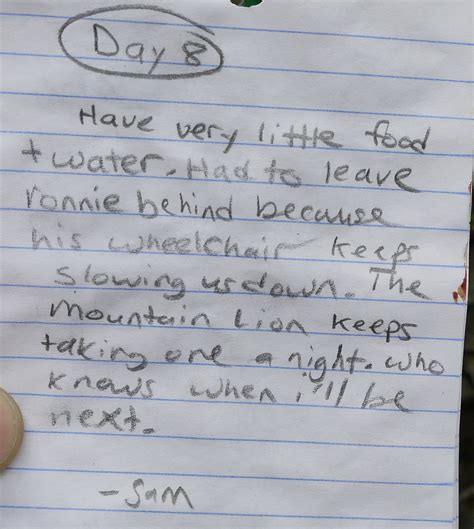 Day 8
Have very little food
+ water. Had to leave
ronnie behind because
his wheelchair keeps
slowing us down. The
mountain Lion keeps
taking one a night. who
knows when i'll be
next.
- Sam